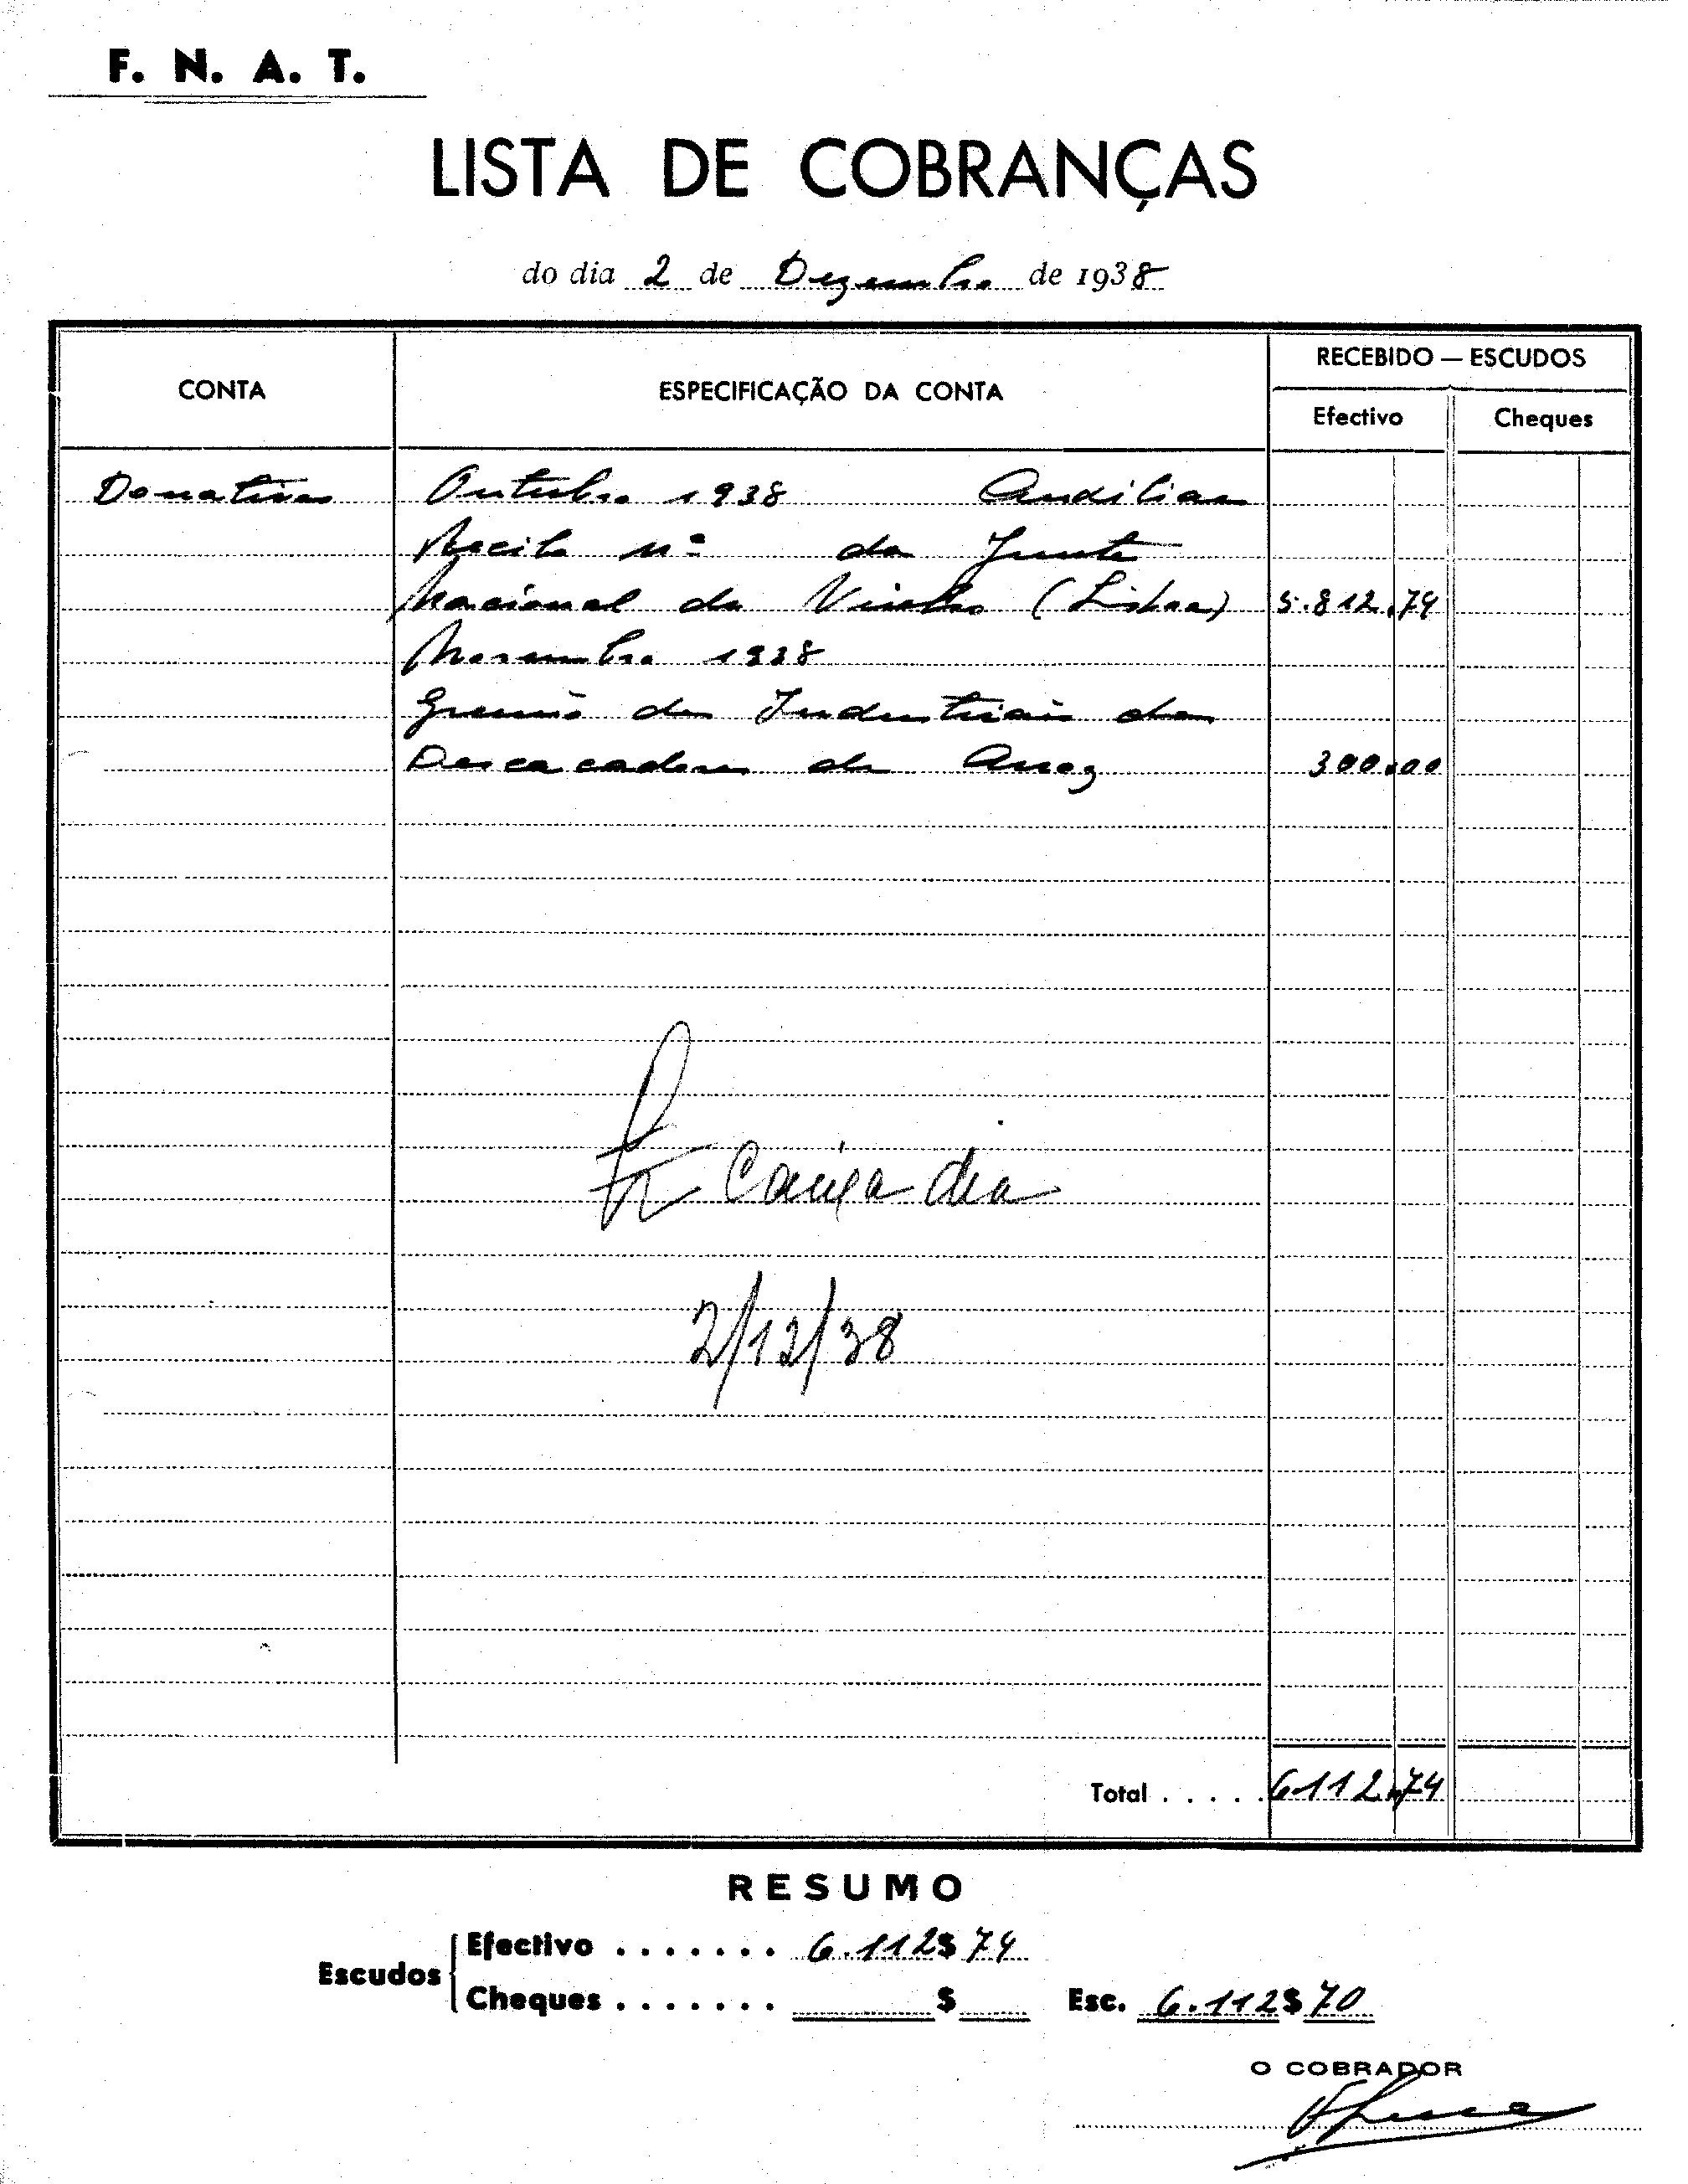 F. N. A. T.
LISTA DE COBRANÇAS
do dia 2 de Dezembro de 1938
CONTA
ESPECIFICAÇÃO DA CONTA
RECEBIDO — ESCUDOS
Efectivo
Cheques
Donativos Outubro 1938
Receita nº da Junta
Nacional do Vinho (Lisboa) 5.812,74
Novembro 1938
Gremio dos Industriais
Descascadores de Arroz 300,00
Caixa dia
2/12/38
Total . . . . . 6112,74
RESUMO
Escudos
Efectivo . . . . . . . 6.112$74
Cheques . . . . . . . $
Esc. 6.112$70
O COBRADOR